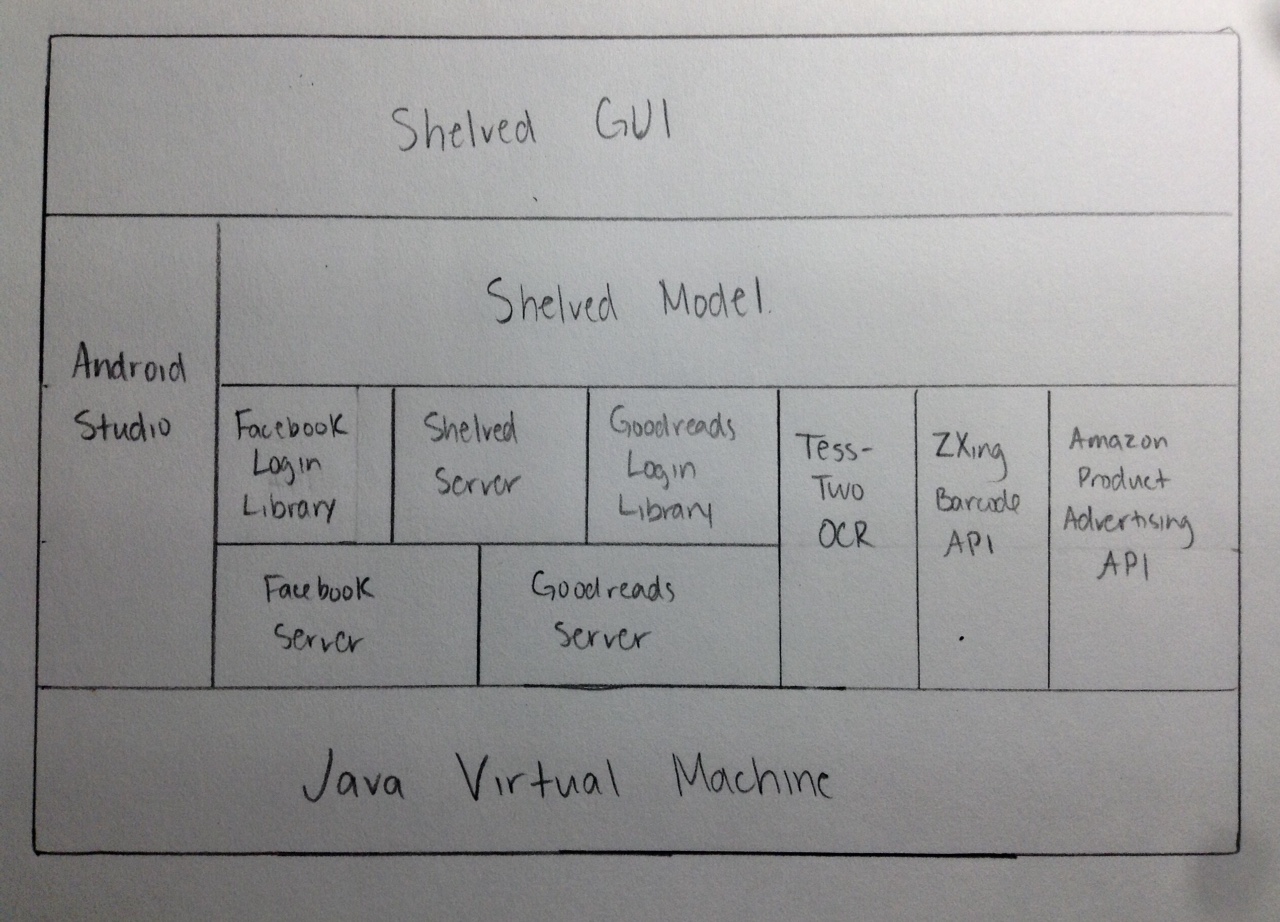 Shelved GUI
Shelved Model
Android
Studio
Facebook
Login
Library
Shelved
Server
Goodreads
Login
Library
Tess-
Two
OCR
ZXing
Barcode
API
Amazon
Product
Advertising
API
Facebook
Server
Goodreads
Server
Java Virtual Machine